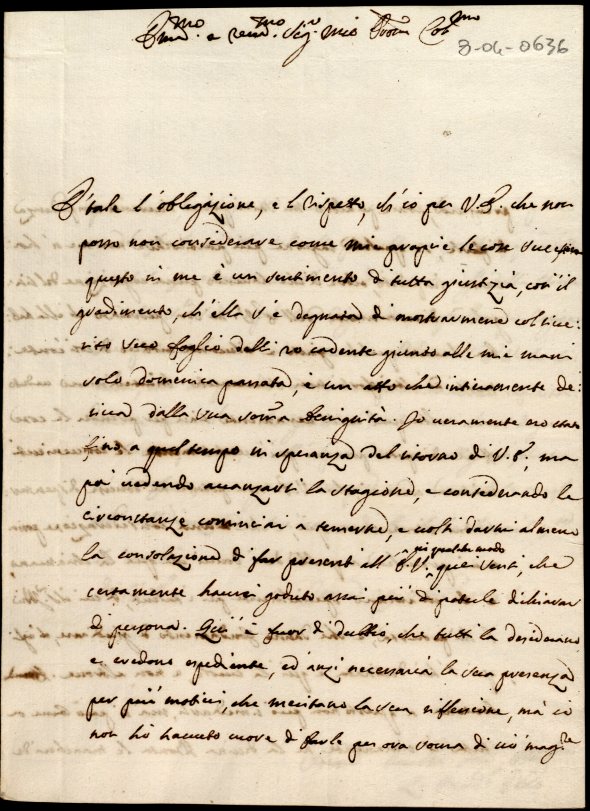 Ill.mo e rev.mo Sig.r mio P.ron Col.mo
8-04-0636
È tale l'obligazione, e 'l rispetto, ch'io per V.E. che non
posso non considerare come mie proprie le cose sue
questo in me è un sentimento di tutta giustizia, così il
gradimento, ch'ella s'è degnata di mostrarmene col rive:
rito suo foglio delli 20 cadente giunto alle mie mani
solo domenica passata, è un atto che intieramente de:
riva dalla sua som̃a benignità. Io veramente ero stato
fino a quel tempo in speranza del ritorno di V.E., ma
poi vedendo avanzarsi la stagione, e considerando le
circonstanze cominciai a temerne, e volsi darmi almeno
la consolazione di far presenti all' E.V. in qualche modo quei sensi, che
certamente haurei goduto assai più di poterle dichiarar
di persona. Quì è fuor di dubbio, che tutti la desiderano
e credono espediente, ed anzi necessaria la sua presenza
per più motivi, che meritano la sua riflessione, mà io
non hò havuto cuore di farle per ora sovra di ciò